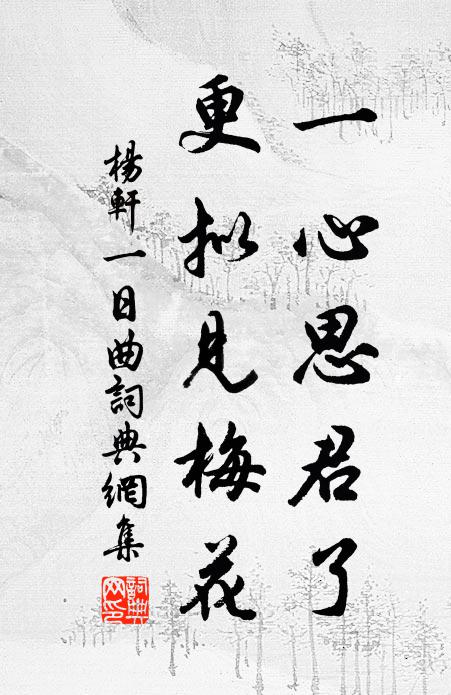 一心思君了
更拟見梅花
楊軒一日曲詞典網集
詞典網印